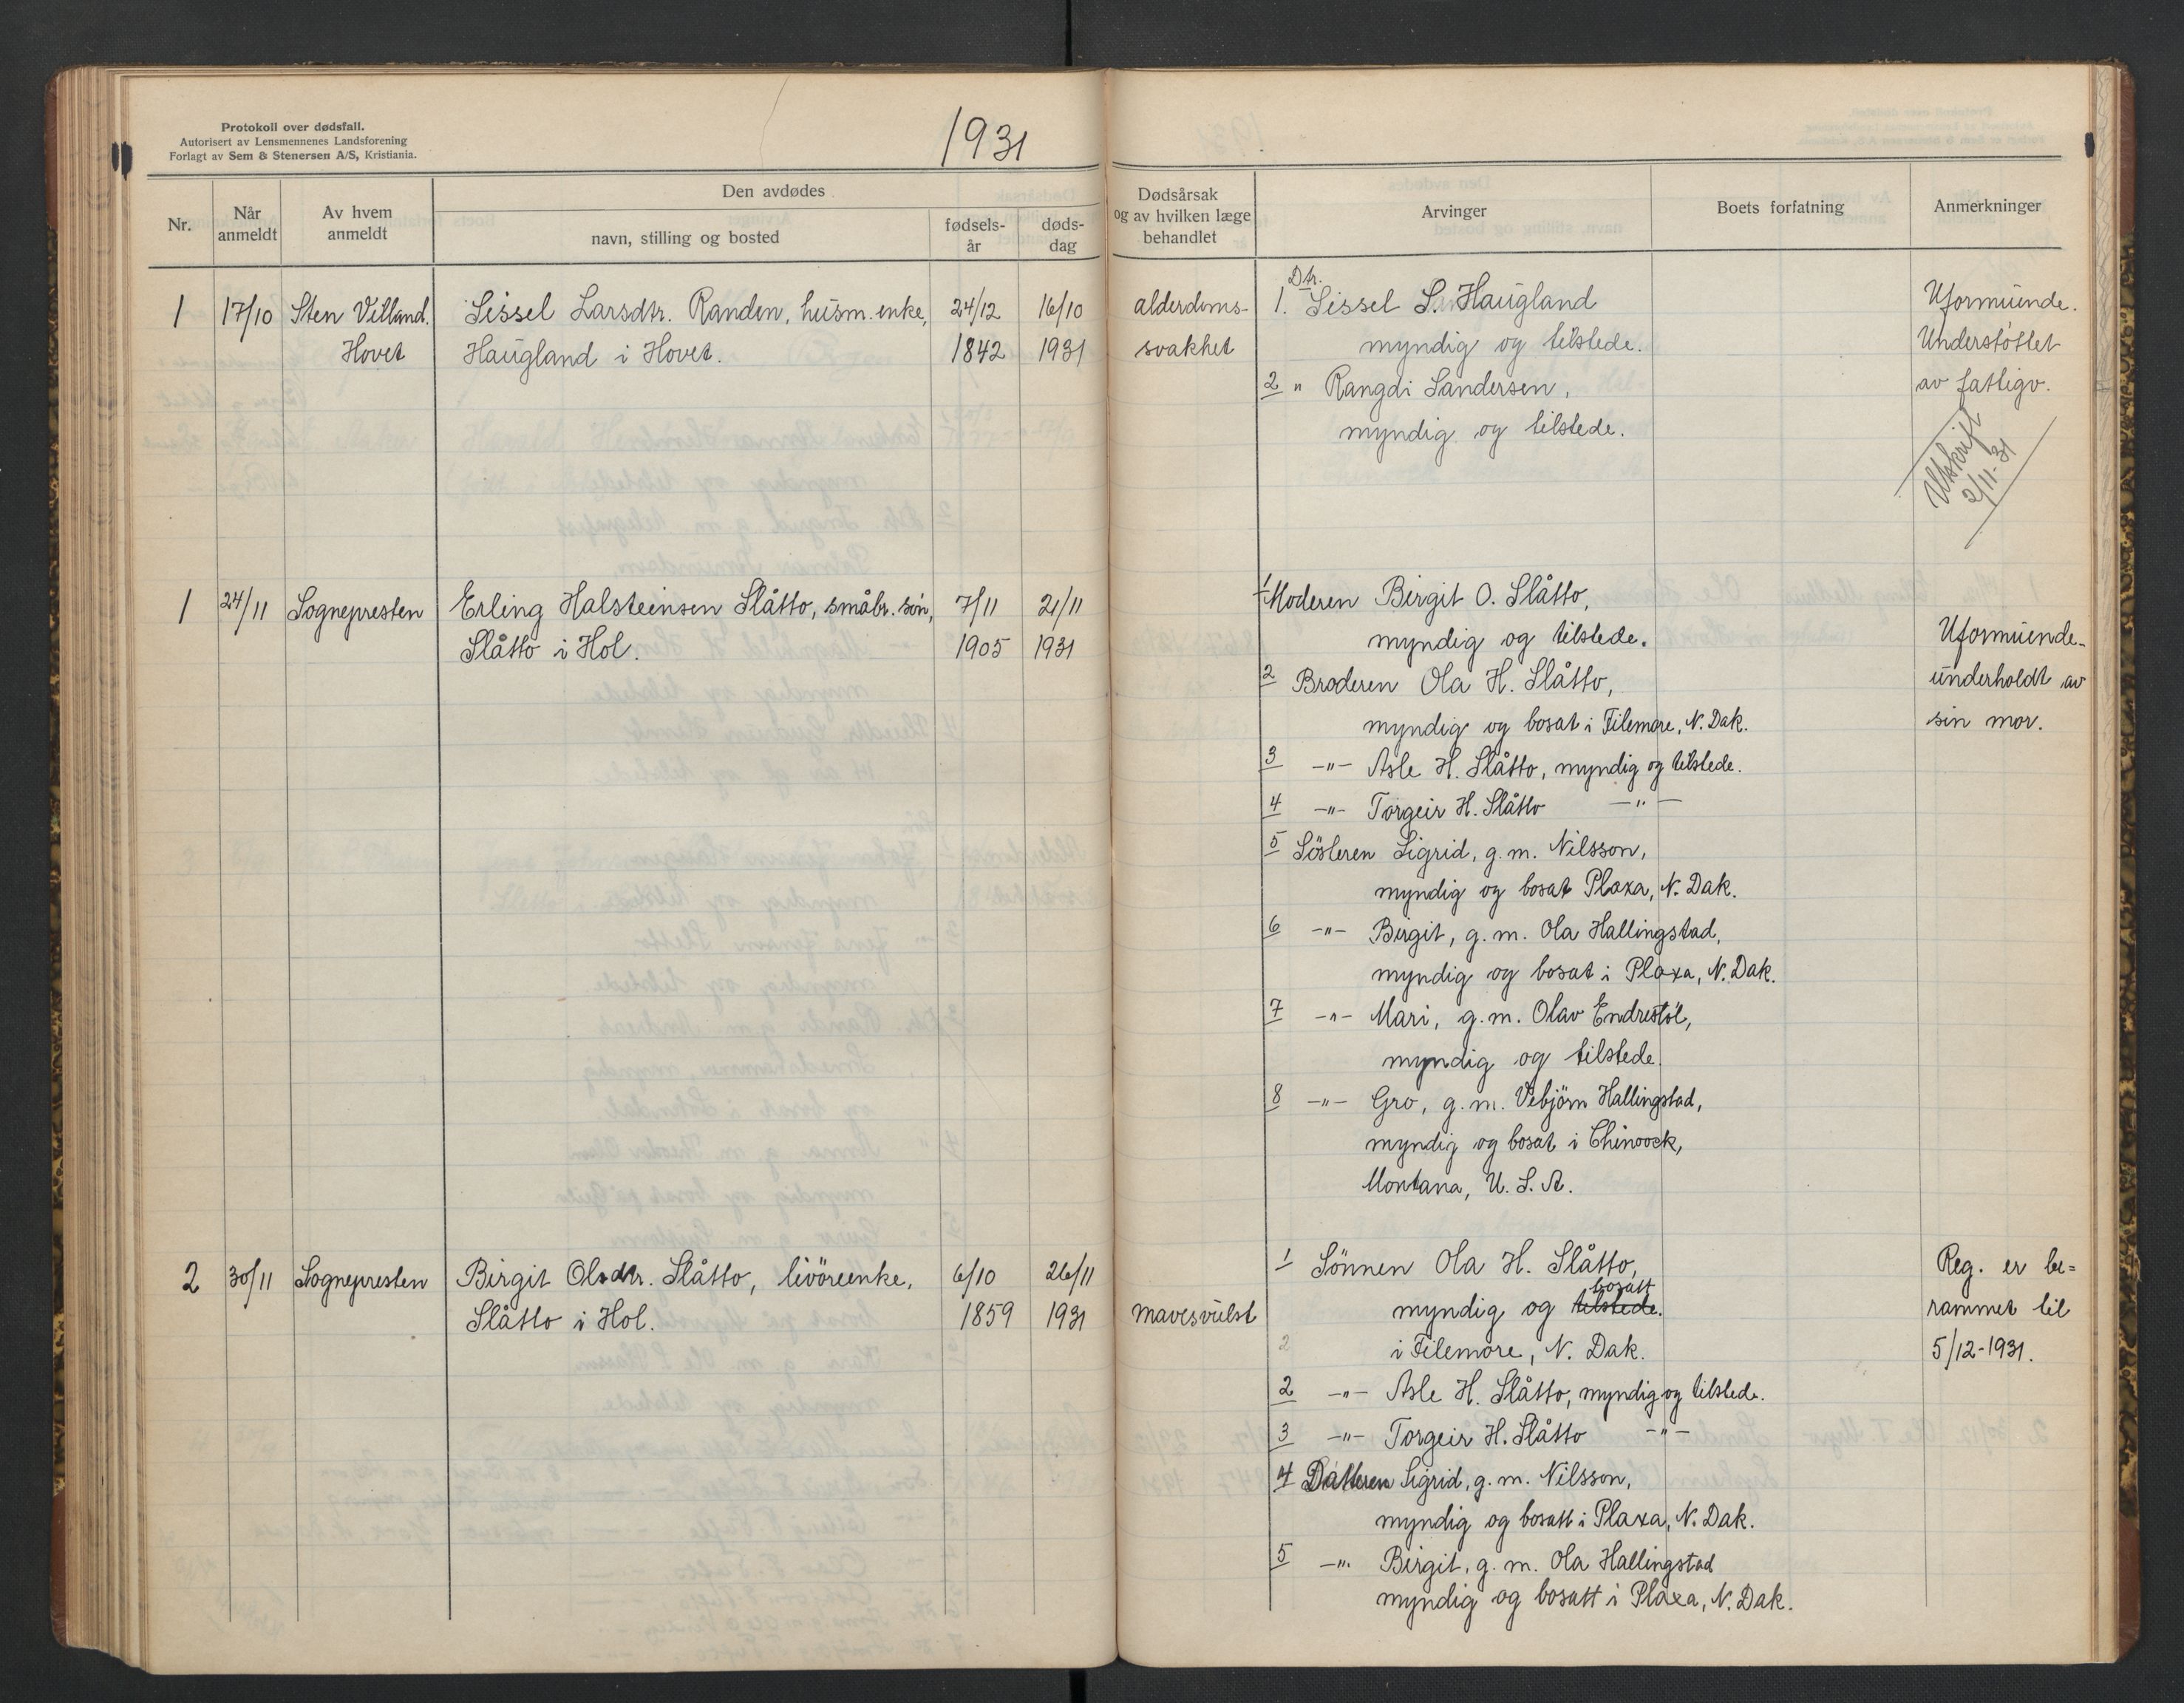 Protokoll over dødsfall.
Autorisert av Lensmennenes Landsforening
Forlagt av Sem & Stenersen A/S, Kristiania.
1931
Nr.
Når anmeldt
Av hvem anmeldt
Den avdødes
navn, stilling og bosted
fødsels-år
døds-dag
Dødsårsak
og av hvilken læge
behandlet
Arvinger
Boets forfatning
Anmerkninger
1 17/10 Sten Villand. Sissel Larsdtr. Randen, husm. enke, 24/12 16/10
Hovet Haugland i Hovet. 1842 1931
alderdoms-
svakhet
Dtr.
1. Sissel S. Haugland
myndig og tilstede.
2 " Rangdi Sandersen,
myndig og tilstede.
Uformuende.
Understøttet
av fattigv.
Utskrift
2/11-31
1 24/11 Sognepresten Erling Halsteinsen Slåtto, småbr. søn, 7/11 21/11
Slåtto i Hol. 1905 1931
1 Moderen Birgit O. Slåtto,
myndig og tilstede.
2 Broderen Ola H. Slåtto,
myndig og bosat i Filemore, N. Dak.
3 -"- Asle H. Slåtto, myndig og tilstede.
4 -"- Torgeir H. Slåtto -"-
5 Søsteren Sigrid, g. m. Nilsson,
myndig og bosat Plaxa, N. Dak.
6 -"- Birgit, g. m. Ola Hallingstad,
myndig og bosat i Plaxa, N. Dak.
7 -"- Mari, g. m. Olav Endrestøl,
myndig og tilstede.
8 -"- Gro, g. m. Vebjörn Hallingstad,
myndig og bosat i Chinoock,
Montana, U. S. A.
Uformuende-
underholdt av
sin mor.
2 30/11 Sognepresten Birgit Olsdtr. Slåtto, livöreenke, 6/10 26/11
Slåtto i Hol. 1859 1931
mavesvulst
1 Sönnen Ola H. Slåtto,
bosatt
myndig og tilstede.
2 i Filemore, N. Dak.
2 -"- Asle H. Slåtto, myndig og tilstede.
3 -"- Torgeir H. Slåtto -"-
4 Datteren Sigrid, g. m. Nilsson,
myndig og bosatt i Plaxa, N. Dak.
5 -"- Birgit, g. m. Ola Hallingstad
myndig og bosatt i Plaxa, N. Dak.
Reg. er be=
rammet til
5/12-1931.